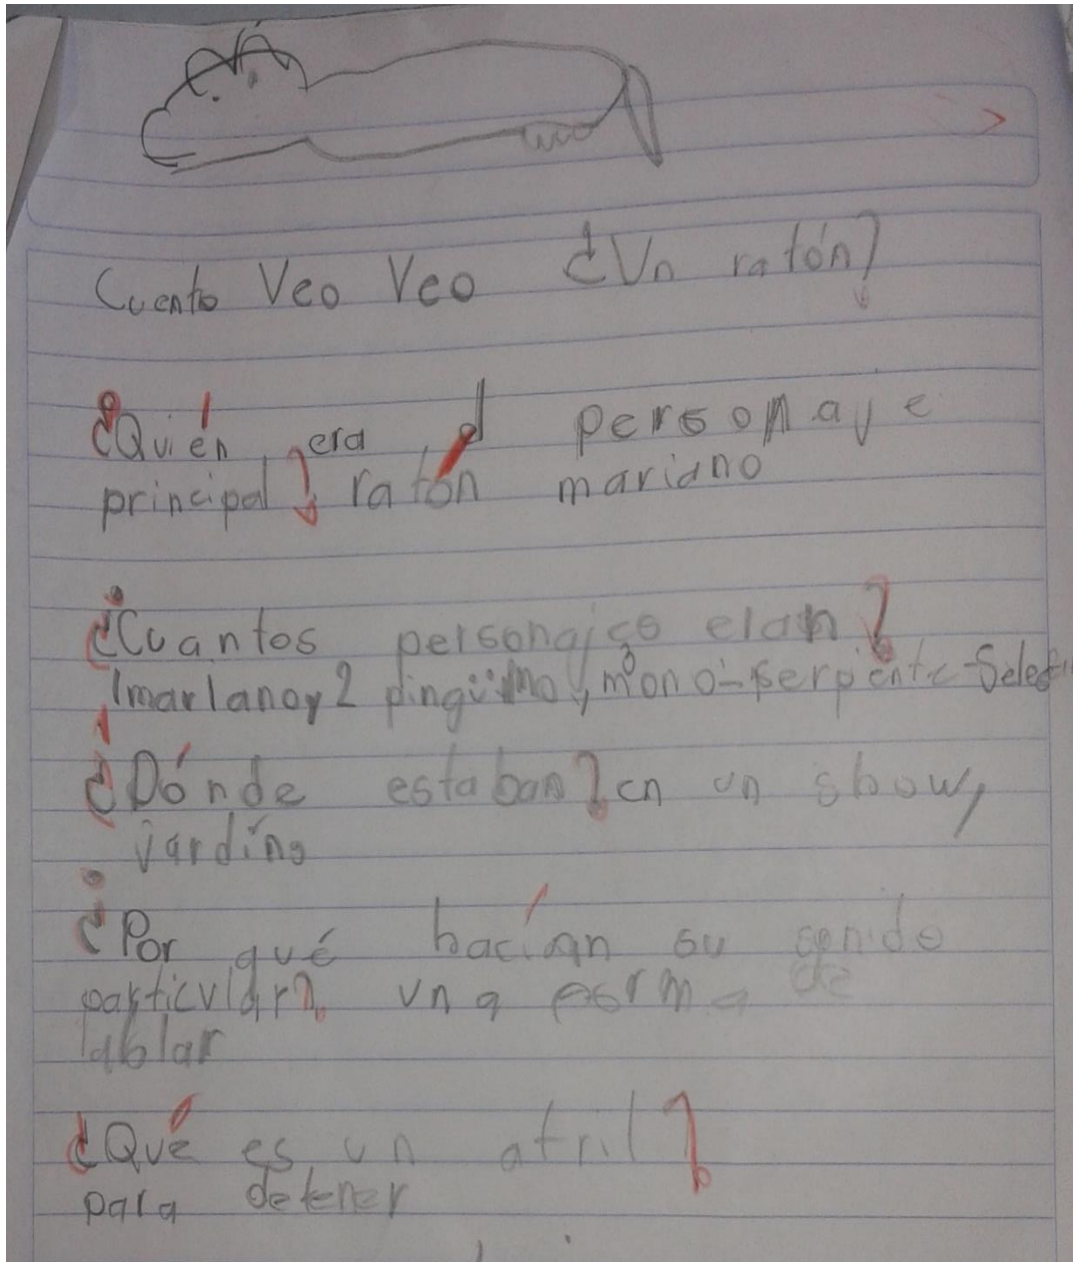 Cuento Veo Veo ¿Un ratón?
¿Quién era el personaje
principal? ratón mariano
¿Cuantos personajes eran?
1 mariano y 2 pingüino y mono - serpiente -
¿Dónde estaban? en un show,
jardíno
¿Por qué hacían su sonido
particular? una forma de
lablar
¿Qué es un atril?
para detener